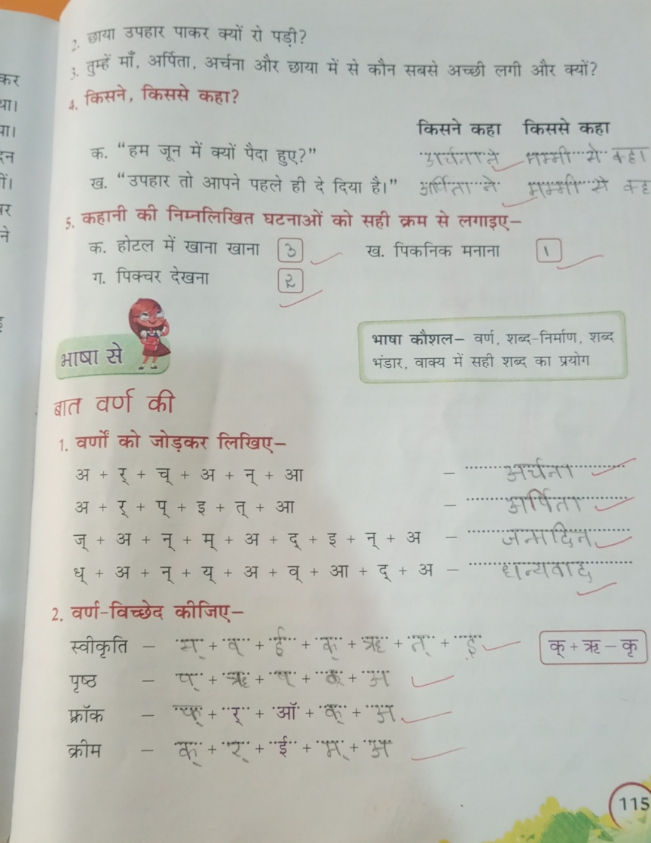 2. छाया उपहार पाकर क्यों रो पड़ी?
3. तुम्हें माँ, अर्पिता, अर्चना और छाया में से कौन सबसे अच्छी लगी और क्यों?
4. किसने, किससे कहा?
किसने कहा किससे कहा
क. “हम जून में क्यों पैदा हुए?” अर्चना ने मम्मी से कहा
ख. “उपहार तो आपने पहले ही दे दिया है।” अर्पिता ने मम्मी से
5. कहानी की निम्नलिखित घटनाओं को सही क्रम से लगाइए–
क. होटल में खाना खाना 3 ख. पिकनिक मनाना 1
ग. पिक्चर देखना 2
भाषा से
भाषा कौशल– वर्ण, शब्द-निर्माण, शब्द
भंडार, वाक्य में सही शब्द का प्रयोग
बात वर्ण की
1. वर्णों को जोड़कर लिखिए–
अ + र् + च् + अ + न् + आ – अर्चना
अ + र् + प् + इ + त् + आ – अर्पिता
ज् + अ + न् + म् + अ + द् + इ + न् + अ – जन्मदिन
ध् + अ + न् + य् + अ + व् + आ + द् + अ – धन्यवाद
2. वर्ण-विच्छेद कीजिए–
स्वीकृति – स् + व् + ई + क् + ऋ + त् + इ क् + ऋ – कृ
पृष्ठ – प् + ऋ + ष् + ठ् + अ
फ्रॉक – फ् + र् + ऑ + क् + अ
क्रीम – क् + र् + ई + म् + अ
115